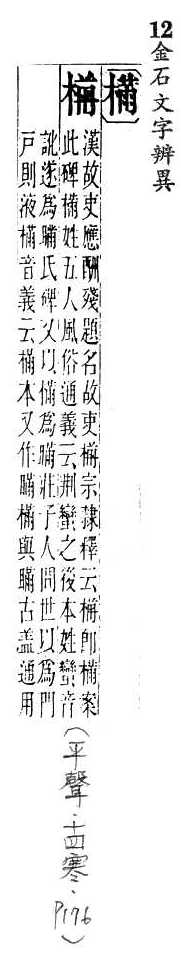 12 金石文字辨異
樠
樠
漢故吏應酬殘題名故吏樠宗隸釋云樠即樠案
此碑樠姓五人風俗通義云荆蠻之後本姓蠻音
訛遂為瞞氏碑又以樠為瞞莊子人間世以為門
戶則液樠音義云樠本又作瞞樠與瞞古盖通用
(平聲·十四寒·P176)